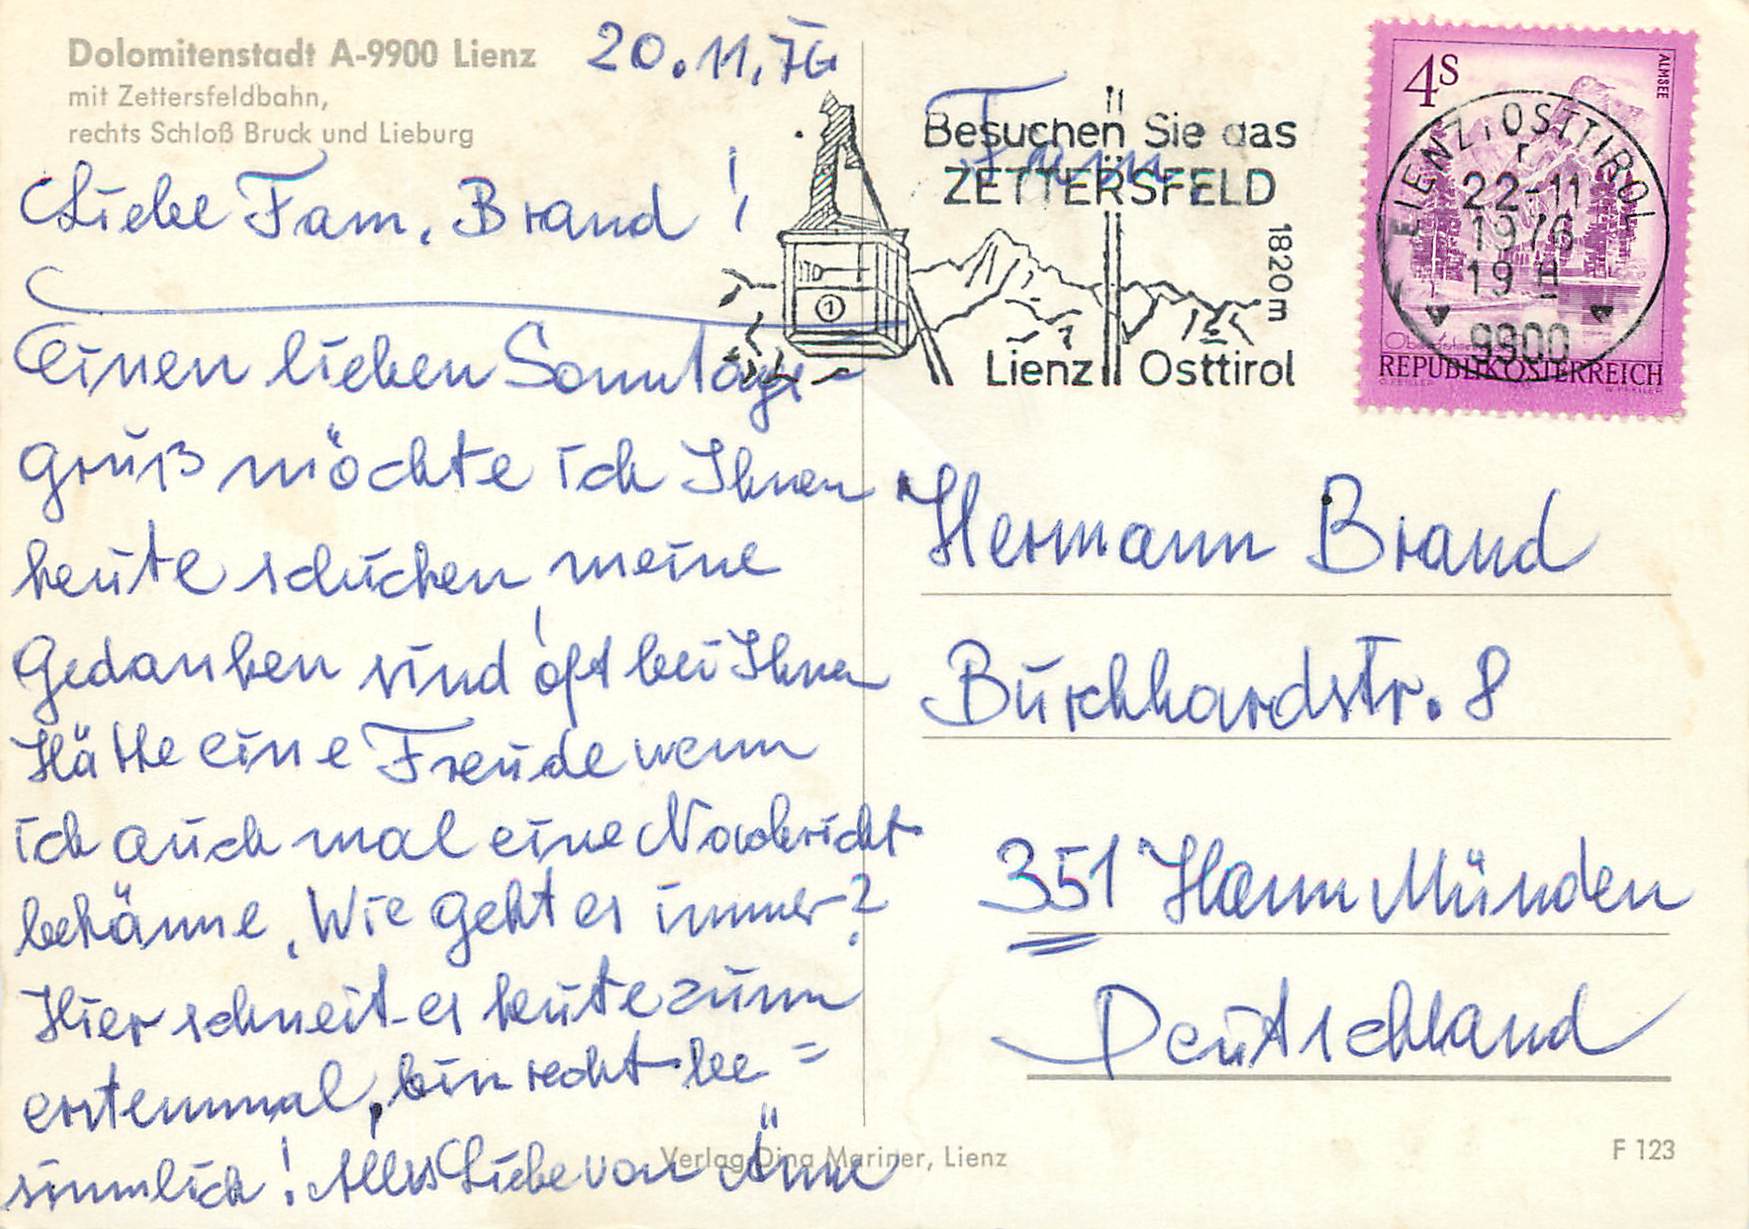 Dolomitenstadt A-9900 Lienz
mit Zettersfeldbahn,
rechts Schloß Bruck und Lieburg
20.11.76
Liebe Fam. Brand!
Einen lieben Sonntags-
gruß möchte ich Ihnen
heute schicken, meine
Gedanken sind oft bei Ihnen
Hätte eine Freude wenn
ich auch mal eine Nachricht
bekämme, Wie geht es immer?
Hier schneit es heute zum
erstemmal, bin recht be=
sinnlich! Alles Liebe von Änne
Besuchen Sie das
ZETTERSFELD
1820m
Lienz Osttirol
1
4S
ALMSEE
REPUBLIK ÖSTERREICH
LIENZ, OSTTIROL
r
22-11
1976
19 H
9900
Fam.
Hermann Brand
Burckhardstr. 8
351 Hann Münden
Deutschland
Verlag Dina Mariner, Lienz
F 123